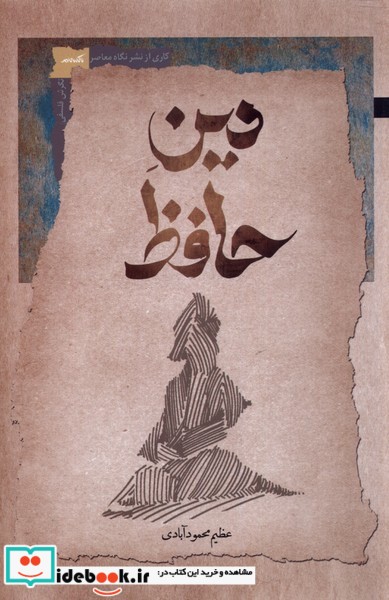 کاری از نشر نگاه معاصر
دینِ
حافظ
عظیم محمودآبادی
مشاهده و خرید این کتاب در:
idebook.ir